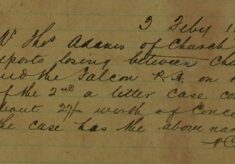 3 Feby 1
Mr Thos Adams of Church
reports losing between Ch
and the Falcon P.H. on
of the 2nd a letter case con
about 27/- worth of
the case has the above nam
PC